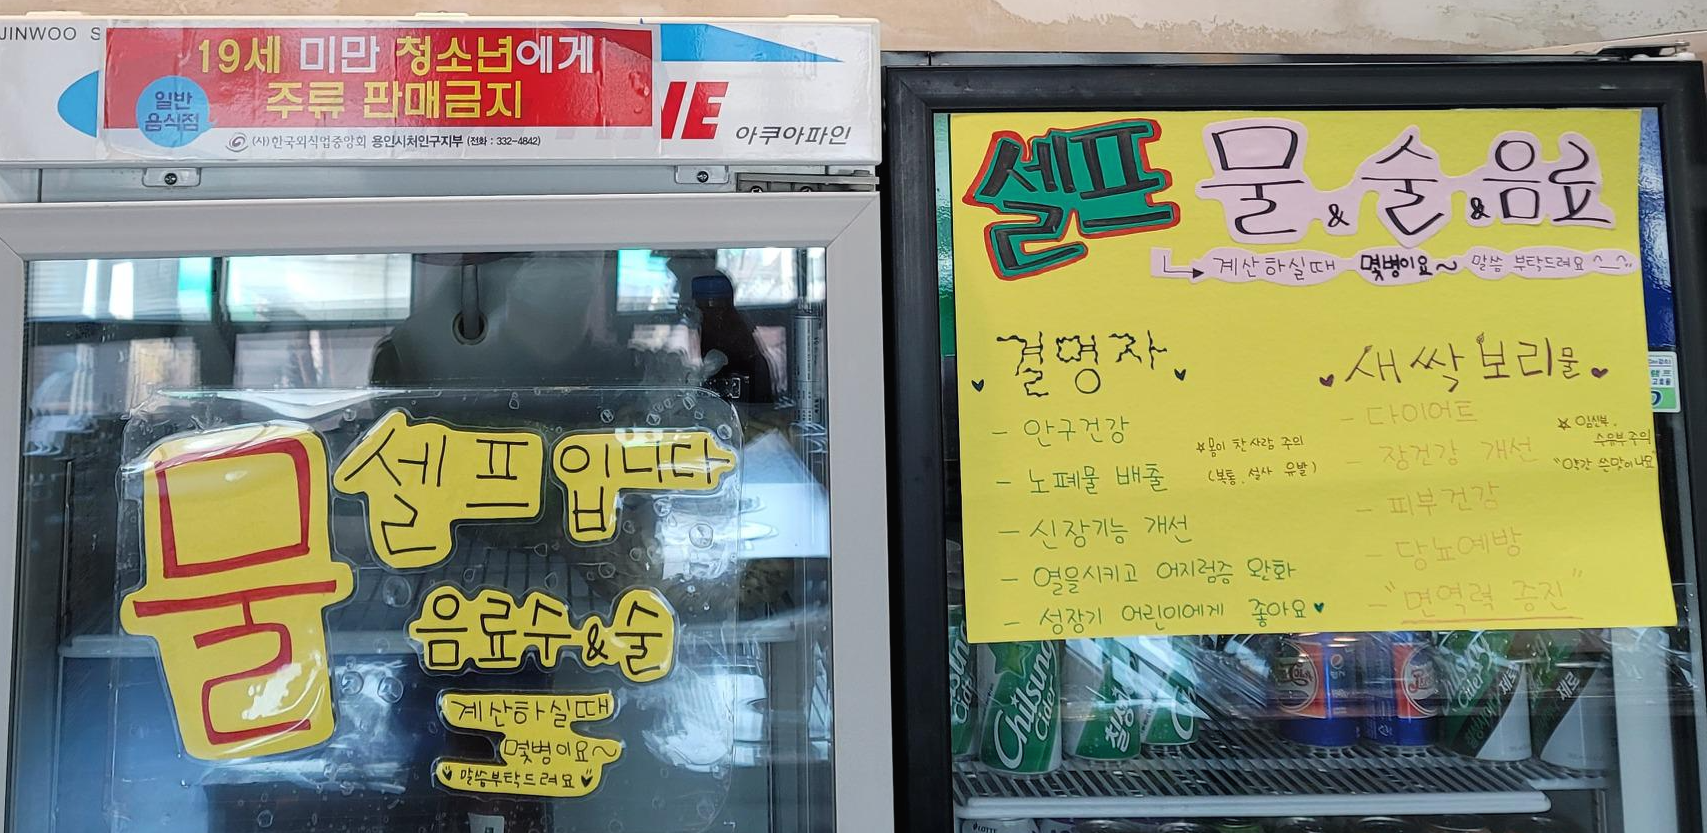 JINWOO S
19세 미만 청소년에게
주류 판매금지
일반
음식점
(사)한국외식업중앙회 용인시처인구지부 (전화 : 332-4842)
NE
아쿠아파인
물
셀프입니다
음료수&술
계산하실때
몇병이요~
말씀부탁드려요
셀프 물&술&음료
계산하실때 몇병이요~ 말씀 부탁드려요^_^..
결명자
- 안구건강
- 노폐물 배출
☆몸이 찬 사람 주의
(복통, 설사 유발)
- 신장기능 개선
- 열을시키고 어지럼증 완화
- 성장기 어린이에게 좋아요
새싹보리물
- 다이어트
- 장건강 개선
☆ 임신부,
수유부주의
"약간 쓴맛이나요"
- 피부건강
- 당뇨예방
- "면역력 증진"
Chilsung
Cider
칠성
Chilsung
Cider
제로
제로
LOTTE